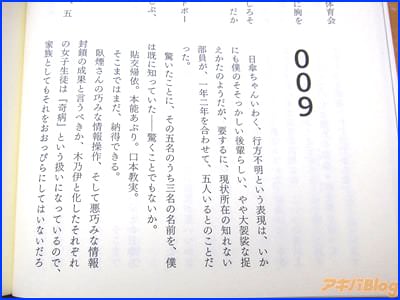 体育会
に胸を
しろそ
だか
ドボー
とぶ、
五
009
日傘ちゃんいわく、行方不明という表現は、いか
にも僕のそそっかしい後輩らしい、やや大袈裟な捉
えかたのようだが、要するに、現状所在の知れない
部員が、一年二年を合わせて、五人いるとのことだ
った。
驚いたことに、その五名のうち三名の名前を、僕
は既に知っていた――驚くことでもないか。
貼交帰依。本能あぶり。口本教実。
そこまではまだ、納得できる。
臥煙さんの巧みな情報操作、そして悪巧みな情報
封鎖の成果と言うべきか、木乃伊と化したそれぞれ
の女子生徒は『奇病』という扱いになっているので、
家族としてもそれをおおっぴらにしてはいないだろ
アキバBlog